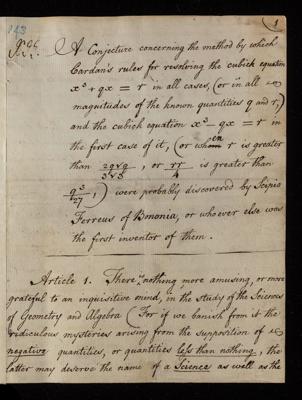 123
1
A Conjecture concerning the method by which
Cardan's rules for resolving the cubick equation
x³ + qx = r in all cases, (or in all
magnitudes of the known quantities q and r,)
and the cubick equation x³ - qx = r in
the first case of it, (or when r is greater
than 2q√q/3√3, or rr/4 is greater than
q³/27,) were probably discovered by Scipio
Ferreus of Bononia, or whoever else was
the first inventor of them.
Article 1. There is nothing more amusing, or more
grateful to an inquisitive mind, in the study of the Sciences
of Geometry and Algebra (For if we banish from it the
ridiculous mysteries arising from the supposition of
negative quantities, or quantities less than nothing, the
latter may deserve the name of a Science as well as the